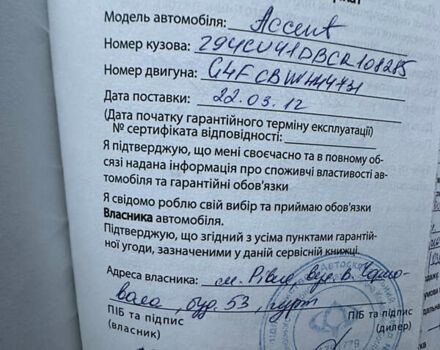 Модель автомобіля: Accent
Номер кузова: Z94CU41DBCR108215
Номер двигуна: G4FCBW
Дата поставки: 22.03.12
(Дата початку гарантійного терміну експлуатації)
№ сертифіката відповідності:
Я підтверджую, що мені своєчасно та в повному об-
сязі надана інформація про споживчі властивості ав-
томобіля та гарантійні обов'язки
Я свідомо роблю свій вибір та приймаю обов'язки
Власника автомобіля.
Підтверджую, що згідний з усіма пунктами гарантій-
ної угоди, зазначеними у даній сервісній книжці
Адреса власника: м. Рівне, вул. В.
буд. 53, гурт
ПІБ та підпис ПІБ та підпис
(власник) (дилер)